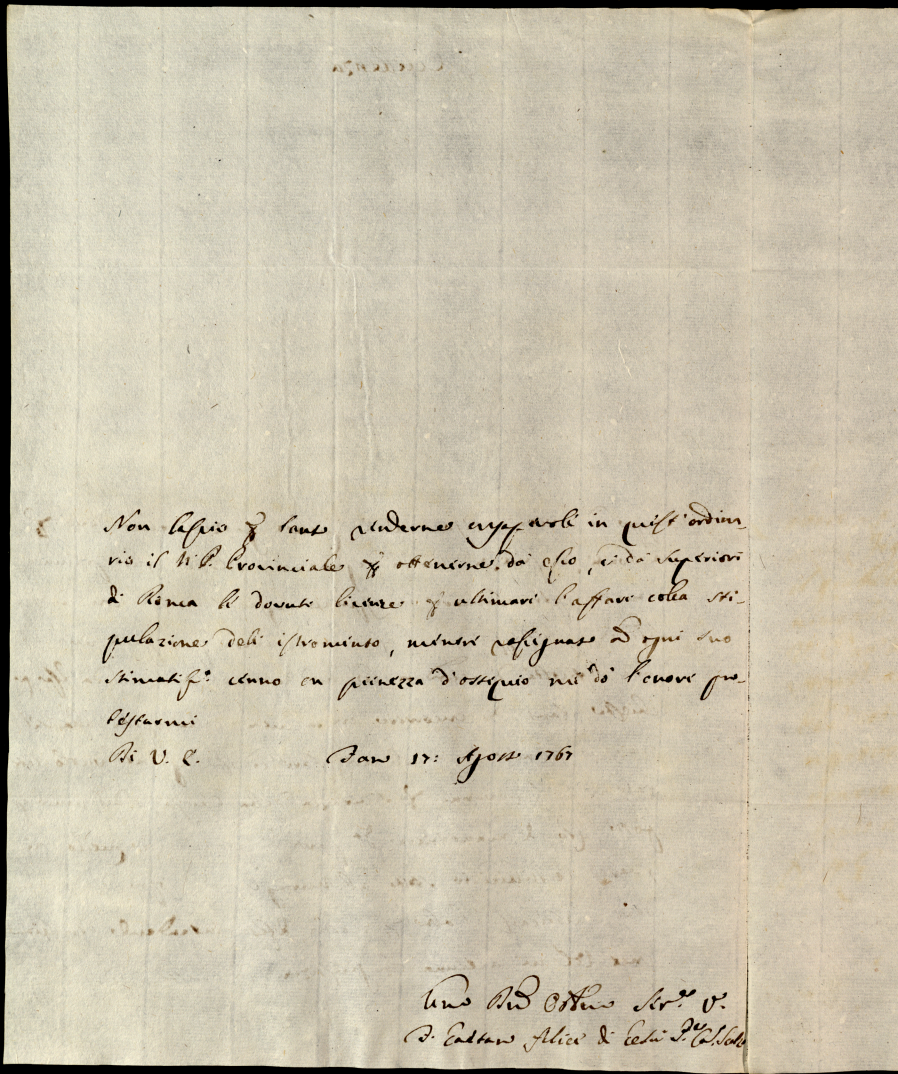 Non lascio per tanto renderne consapevole in quest'ordina-
rio il N. P. Provinciale per ottenerne da esso, e da Superiori
di Roma le dovute licenze per ultimare l'affare colla sti-
pulazione dell'istromento, mentre rassegnato ad ogni suo
stimatiss.o cenno con pienezza d'ossequio mi dò l'onore pro-
testarmi
Di V. E. 17: Agosto 1767
Umo Dev.mo Obblmo Ser.re V.
F. Gaetano Felice di Gesù